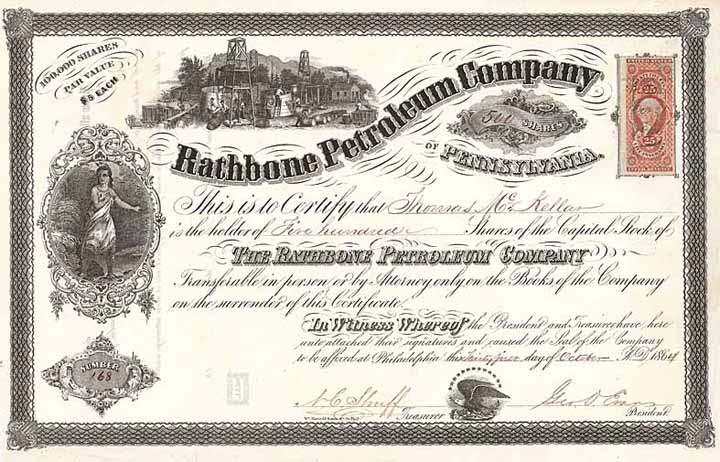 100,000 SHARES
PAR VALUE
$5 EACH
Rathbone Petroleum Company
500 SHARES
OF PENNSYLVANIA.
25 25
This is to Certify that Thomas McKellar
is the holder of Five hundred Shares of the Capital Stock of
THE RATHBONE PETROLEUM COMPANY
Transferable in person or by Attorney only on the Books of the Company
on the surrender of this Certificate.
In Witness Whereof the President and Treasurer have here
unto attached their signatures and caused the Seal of the Company
to be affixed at Philadelphia this day of October A.D. 1864
NUMBER
168
Treasurer
Geo. President